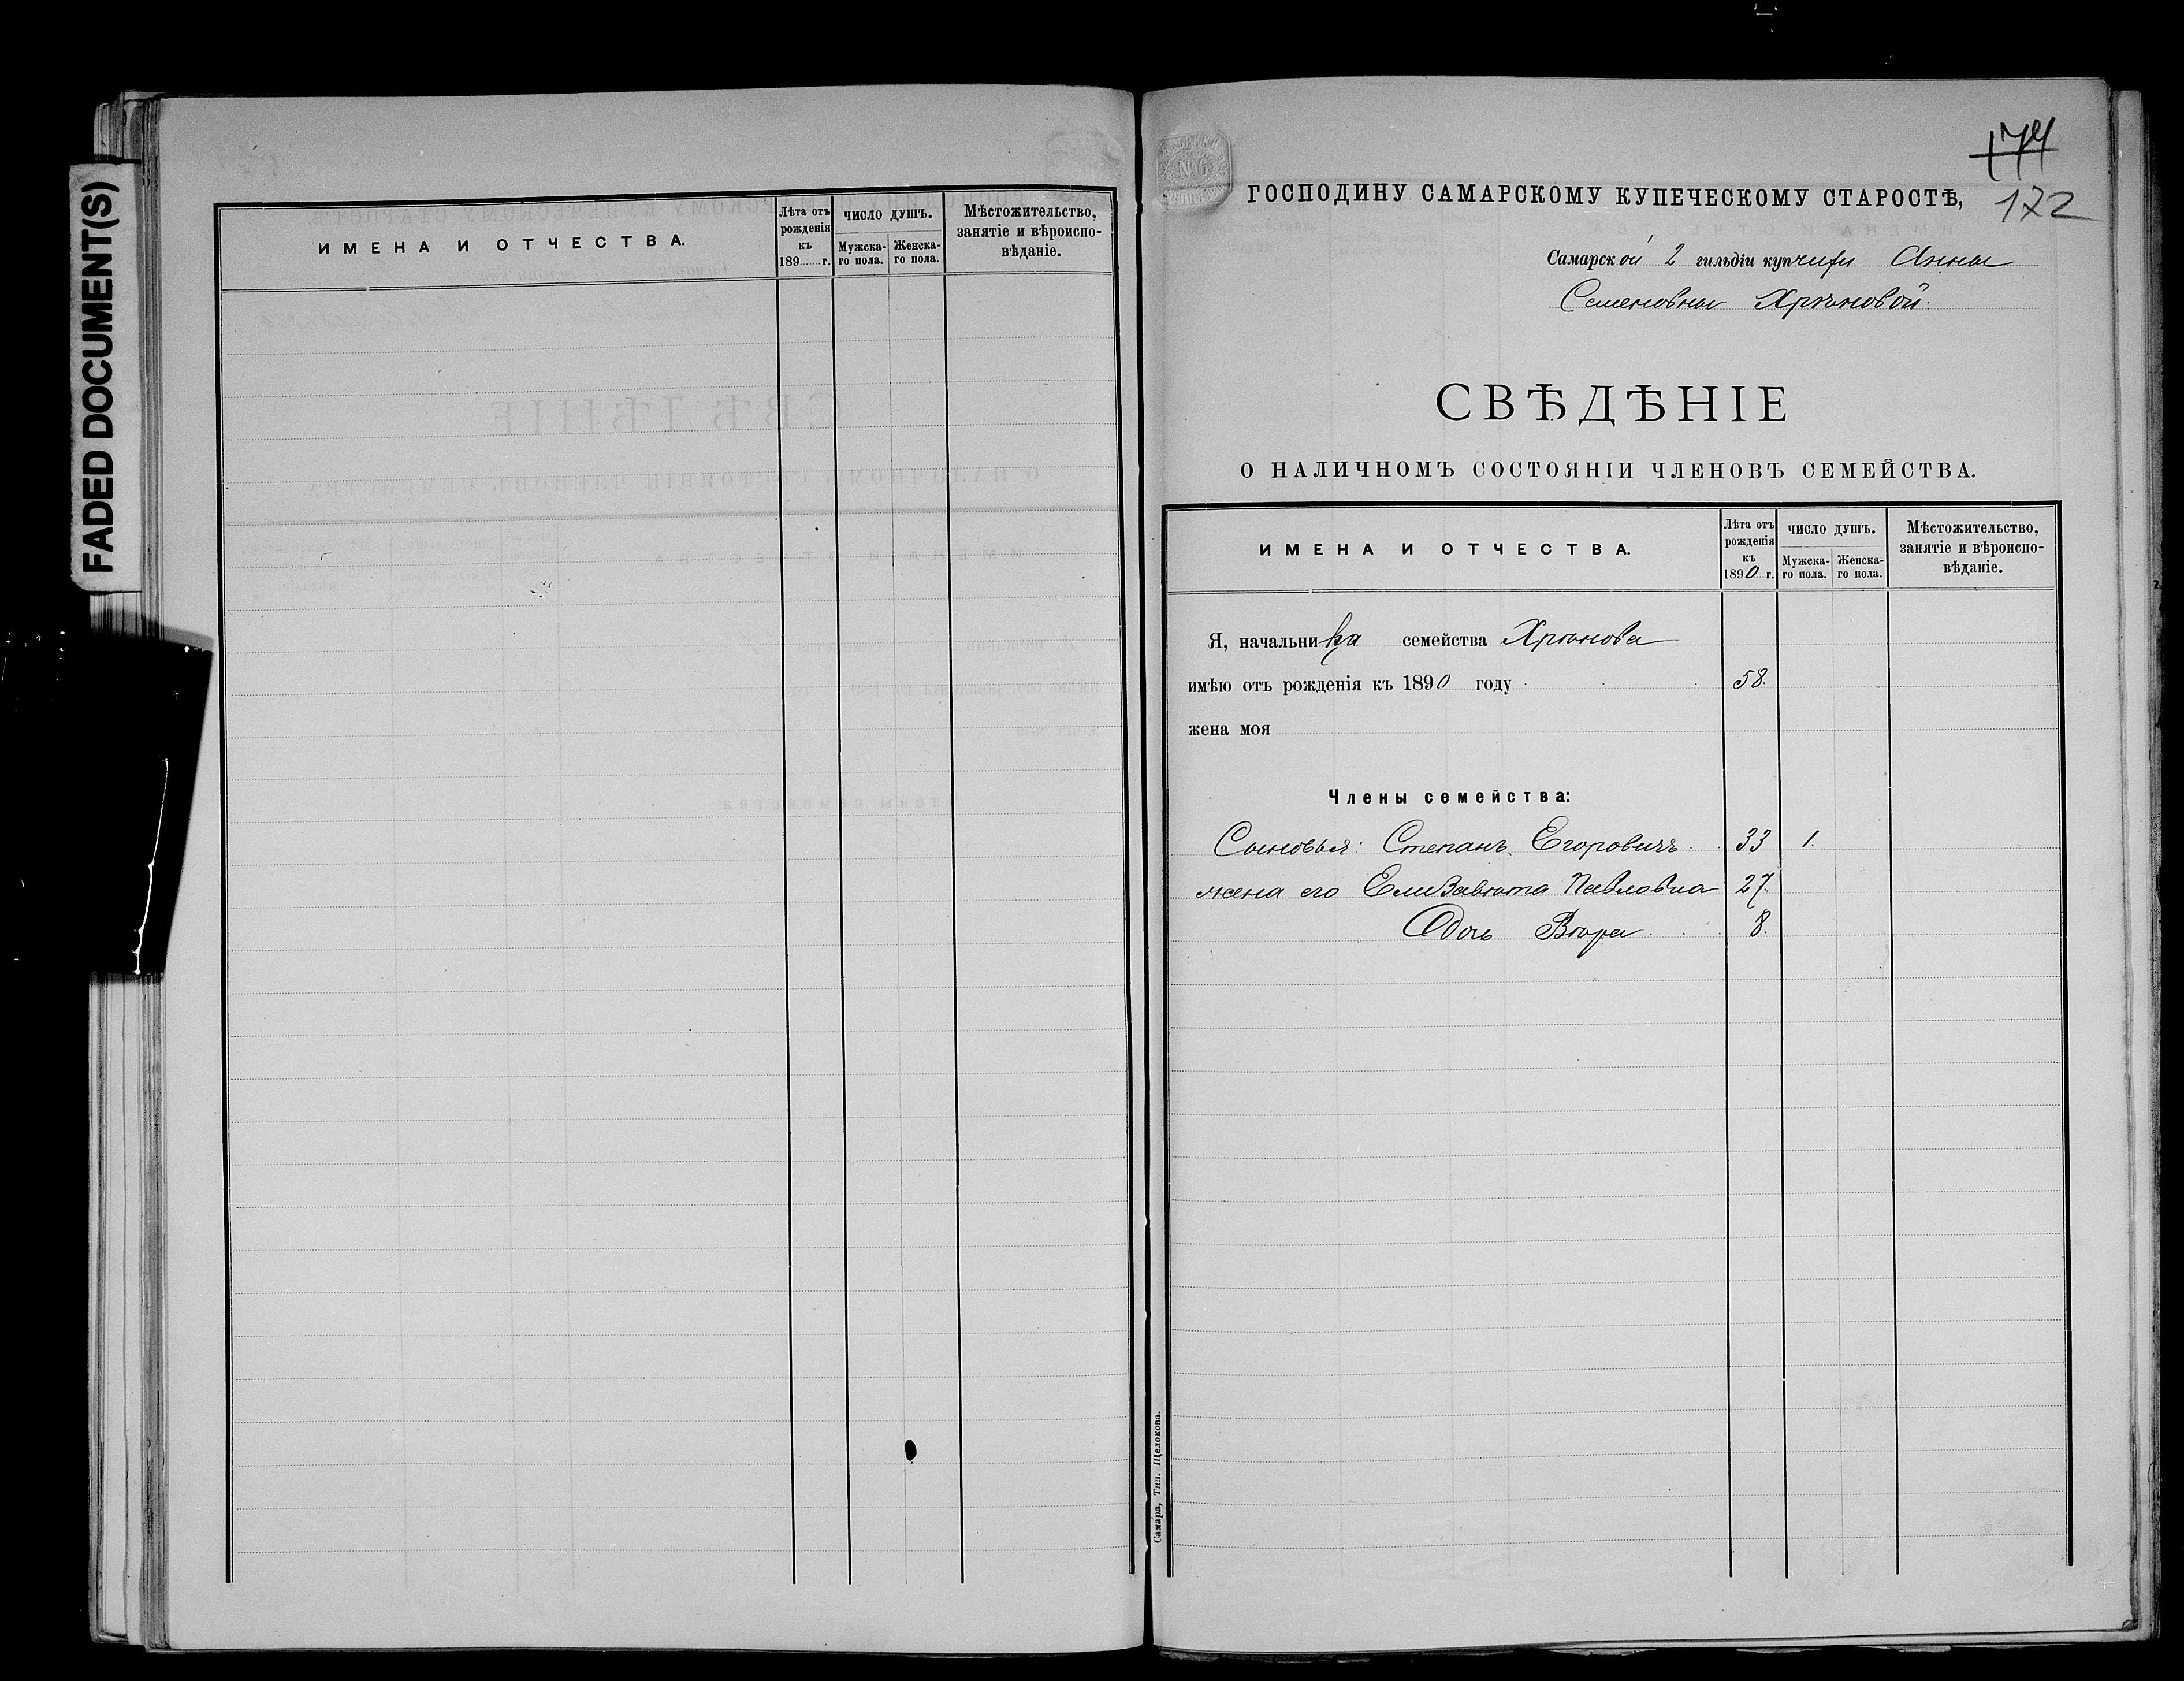 FADED DOCUMENT(S)
ИМЕНА И ОТЧЕСТВА.
Лѣта отъ рожденія къ 189 г.
ЧИСЛО ДУШЪ.
Мужска-го пола.
Женска-го пола.
Мѣстожительство, занятіе и вѣроиспо-вѣданіе.
174
172
№6
ГОСПОДИНУ САМАРСКОМУ КУПЕЧЕСКОМУ СТАРОСТѢ,
Самарской 2 гильдіи купчихи Анны
Семеновны Хрѣновой.
СВѢДѢНІЕ
О НАЛИЧНОМЪ СОСТОЯНІИ ЧЛЕНОВЪ СЕМЕЙСТВА.
ИМЕНА И ОТЧЕСТВА.
Лѣта отъ рожденія къ 1890 г.
ЧИСЛО ДУШЪ.
Мужска-го пола.
Женска-го пола.
Мѣстожительство, занятіе и вѣроиспо-вѣданіе.
Я, начальница семейства Хрѣнова
имѣю отъ рожденія къ 1890 году 58.
жена моя
Члены семейства:
Сыновья: Степанъ Егоровичъ 33 1.
жена его Елизавѣта Павловна 27.
Дочь Вѣра 8.
Самара, Тип. Щелокова.